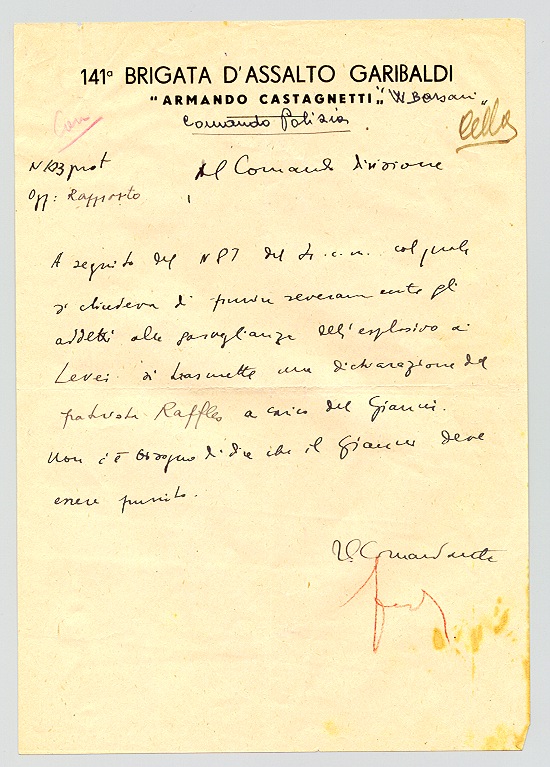 141ª BRIGATA D'ASSALTO GARIBALDI
"ARMANDO CASTAGNETTI" "W Barsari"
Comando Polizia
N 123 prot
Al Comando divisione
Ogg: Rapporto
A seguito del N 87 del col quale
si chiedeva di punire severamente gli
addetti alla sorveglianza dell'esplosivo ai
Levei si trasmette una dichiarazione del
patriota Raffles a carico del Gianni.
Non c'è bisogno di dire che il Gianni deve
essere punito.
Il Comandante